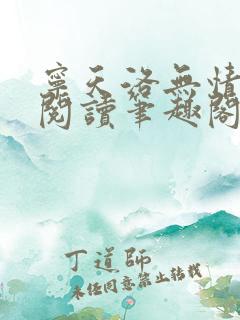 寧天洛無情
閱讀筆趣閣
丁道師
未任同意禁止轉載